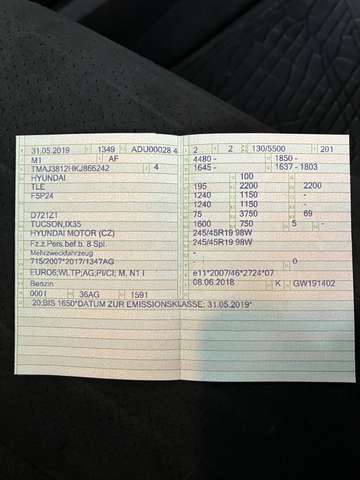 31.05.2019 1349 ADU00028 4
M1 AF
TMAJ3812HKJ866242 4
HYUNDAI
TLE
F5P24
D721Z1
TUCSON,IX35
HYUNDAI MOTOR (CZ)
Fz.z.Pers.bef b. 8 Spl.
Mehrzweckfahrzeug
715/2007*2017/1347AG
EURO6;WLTP;AG;PI/CI; M, N1 I
Benzin
0001 36AG 1591
20:BIS 1650*DATUM ZUR EMISSIONSKLASSE: 31.05.2019*
2 2 130/5500 201
4480 - 1850 -
1645 - 1637 - 1803
100
195 2200 2200
1240 1150 -
1240 1150 -
75 3750 69
1600 750 5 -
245/45R19 98W
245/45R19 98W
-
- 0
e11*2007/46*2724*07
08.06.2018 K GW191402